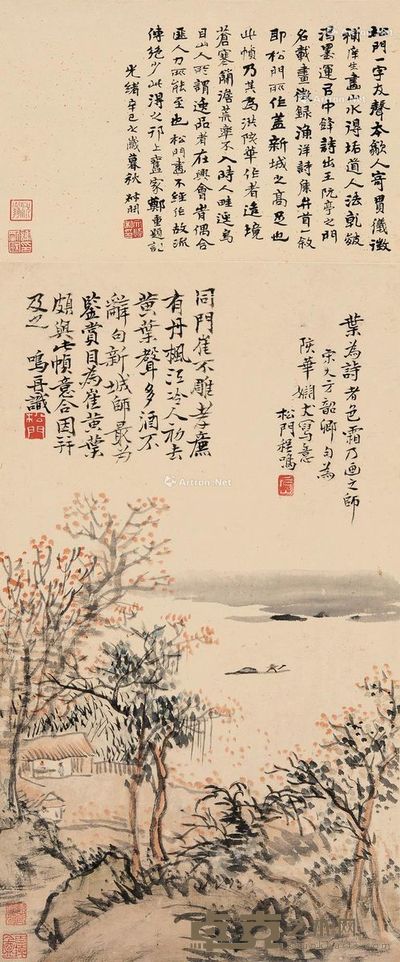 松門一字友聲本歙人寄貫儀徵
補庠生畫山水得垢道人法乾皴
渴墨運以中鋒詩出王阮亭之門
名載畫徵錄漁洋詩集首一敘
即松門所作蓋新城之高足也
此幀乃其為洪陔華作者造境
蒼寒簡澹荒率不入時人畦逕烏
目山人所謂逸品者在興會偶合
匪人力所能至也松門畫不經作故流
傳絕少此得之邗上舊家鄭重題記
光緒辛巳歲暮秋
葉為詩者色霜乃画之師
宋人方韶卿句為
陔華嫻丈寫意
松門程鳴
同門崔不雕孝廉
有丹楓江冷人初去
黃葉聲多酒不
辭句新城師最為
鑒賞目為崔黃葉
頗與此幀意合因并
及之 鳴再識
松門
Artron.Net